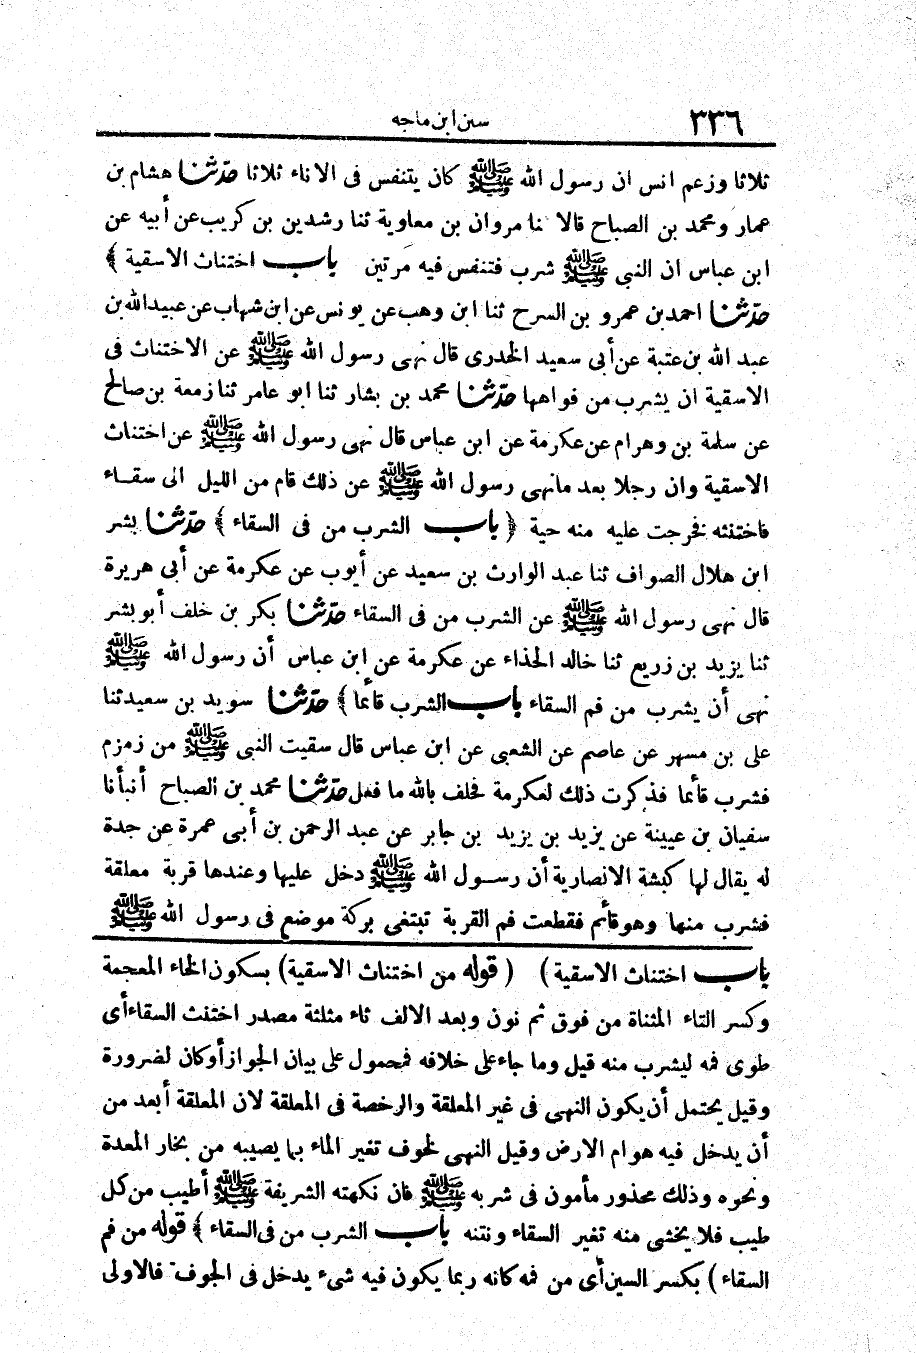 ٣٣٦ سنن ابن ماجه
ثلاثا وزعم انس ان رسول الله ﷺ كان يتنفس فى الاناء ثلاثا حدّثنا هشام بن
عمار ومحمد بن الصباح قالا ثنا مروان بن معاوية ثنا رشدين بن كريب عن أبيه عن
ابن عباس ان النبي ﷺ شرب فتنفس فيه مرتين باب اختناث الاسقية ﴾
حدّثنا احمد بن عمرو بن السرح ثنا ابن وهب عن يونس عن ابن شهاب عن عبيد الله بن
عبد الله بن عتبة عن أبى سعيد الخدرى قال نهى رسول الله ﷺ عن الاختناث فى
الاسقية ان يشرب من فواهها حدّثنا محمد بن بشار ثنا ابو عامر ثنا زمعة بن صالح
عن سلمة بن وهرام عن عكرمة عن ابن عباس قال نهى رسول الله ﷺ عن اختناث
الاسقية وان رجلا بعد مانهى رسول الله ﷺ عن ذلك قام من الليل الى سقاء
فاختنثه فخرجت عليه منه حية ﴿ باب الشرب من فى السقاء ﴾ حدّثنا بشر
ابن هلال الصواف ثنا عبد الوارث بن سعيد عن أيوب عن عكرمة عن أبى هريرة
قال نهى رسول الله ﷺ عن الشرب من فى السقاء حدّثنا بكر بن خلف أبو بشر
ثنا يزيد بن زريع ثنا خالد الحذاء عن عكرمة عن ابن عباس أن رسول الله ﷺ
نهى أن يشرب من فم السقاء باب الشرب قائما ﴾ حدّثنا سويد بن سعيد ثنا
على بن مسهر عن عاصم عن الشعبى عن ابن عباس قال سقيت النبى ﷺ من زمزم
فشرب قائما فذكرت ذلك لعكرمة فحلف بالله ما فعل حدّثنا محمد بن الصباح أنبأنا
سفيان بن عيينة عن يزيد بن يزيد بن جابر عن عبد الرحمن بن أبى عمرة عن جدة
له يقال لها كبشة الانصارية أن رســول الله ﷺ دخل عليها وعندها قربة معلقة
فشرب منها وهو قائم فقطعت فم القربة تبتغى بركة موضع فى رسول الله ﷺ
باب اختناث الاسقية ) ( قوله من اختناث الاسقية ) بسكون الخاء المعجمة
وكسر التاء المثناة من فوق ثم نون وبعد الالف ثاء مثلثة مصدر اختنث السقاء أى
طوى فمه ليشرب منه قيل وما جاء على خلافه فمحمول على بيان الجواز أو كان لضرورة
وقيل يحتمل أن يكون النهى فى غير المعلقة والرخصة فى المعلقة لان المعلقة أبعد من
أن يدخل فيه هوام الارض وقيل النهى لخوف تغير الماء بما يصيبه من بخار المعدة
ونحوه وذلك محذور مأمون فى شربه ﷺ فان نكهته الشريفة ﷺ أطيب من كل
طيب فلا يخشى منه تغير السقاء ونتنه باب الشرب من فى السقاء ﴾ قوله من فم
السقاء ) بكسر السين أى من فمه كانه ربما يكون فيه شىء يدخل فى الجوف فالاولى